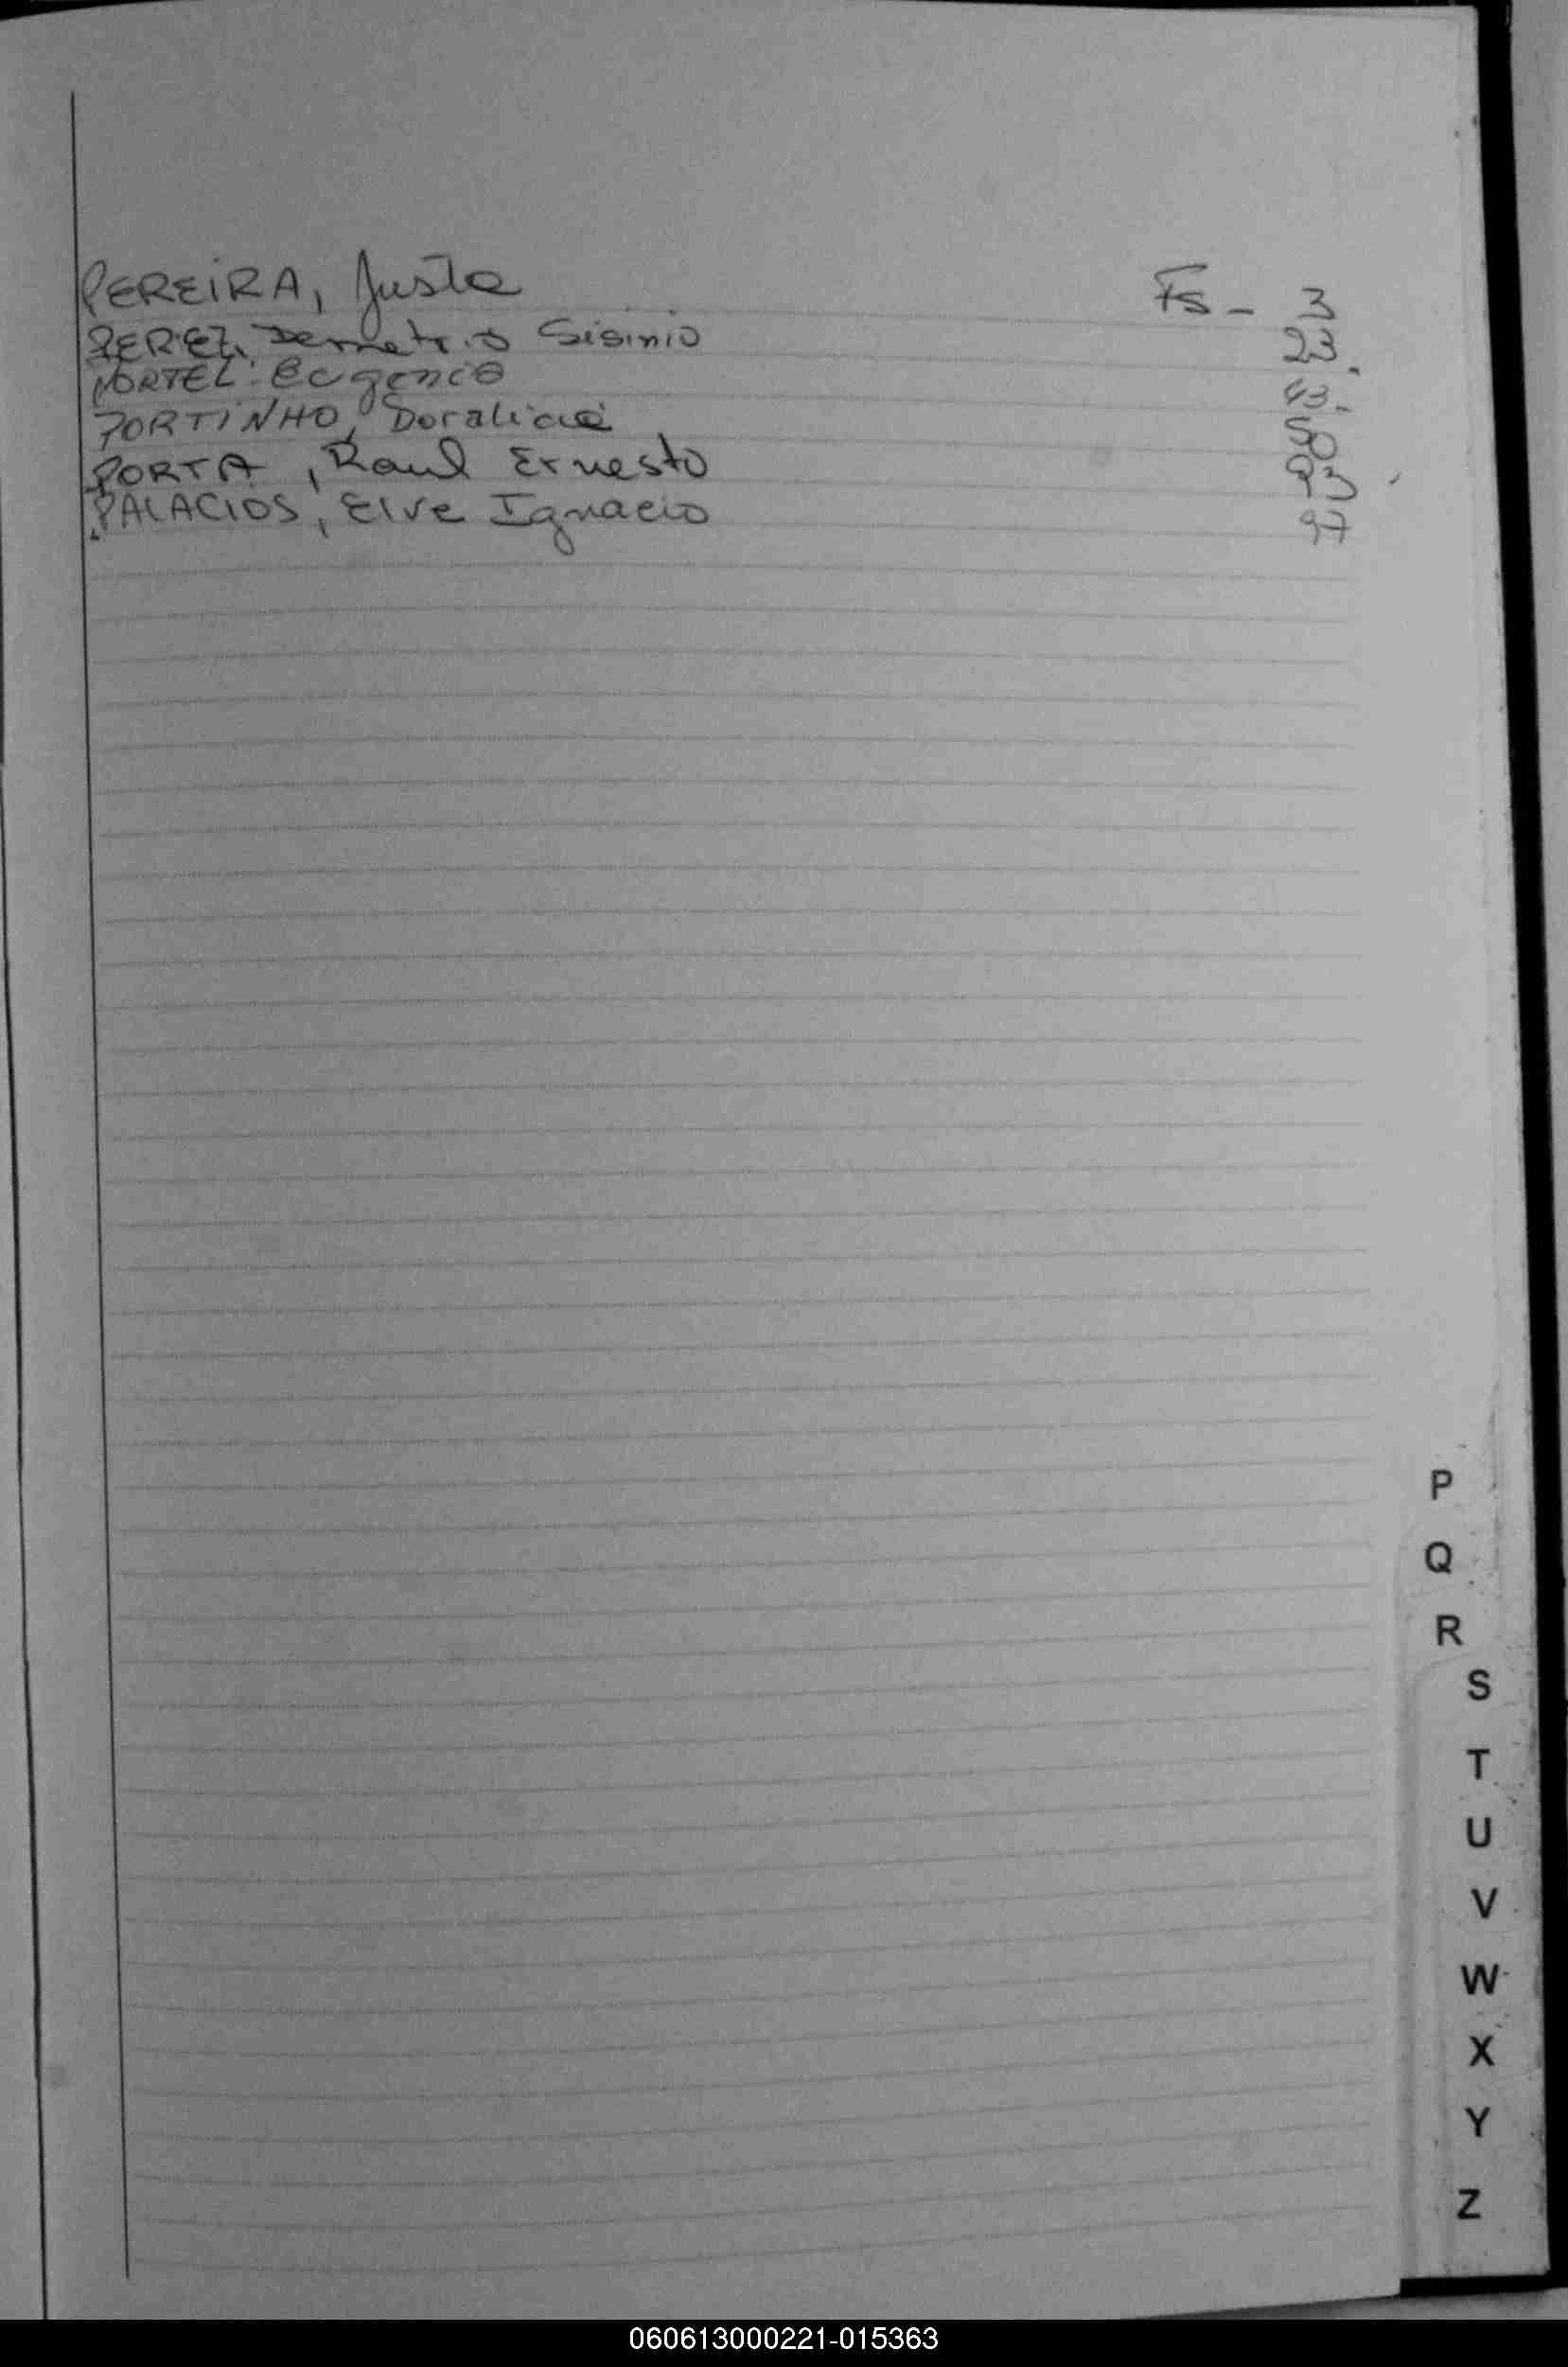 PEREIRA, Justa Fs - 3
PEREZ, Demetrio Sisinio 23.
PORTEL. Eugenio 43.
PORTINHO, Doralicia 50
PORTA, Raul Ernesto 93
PALACIOS, Elve Ignacio 97
P
Q
R
S
T
U
V
W
X
Y
Z
060613000221-015363